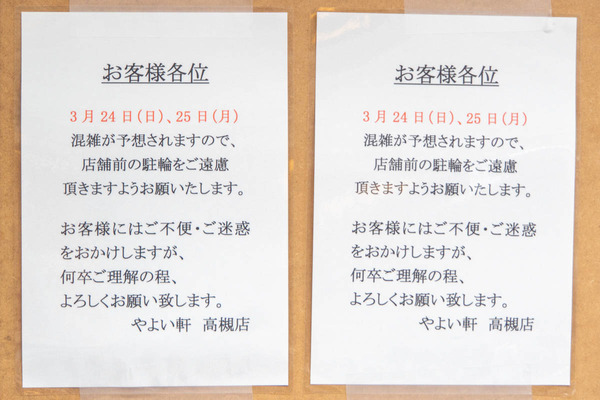 お客様各位
3月24日(日)、25日(月)
混雑が予想されますので、
店舗前の駐輪をご遠慮
頂きますようお願いいたします。
お客様にはご不便・ご迷惑
をおかけしますが、
何卒ご理解の程、
よろしくお願い致します。
やよい軒 高槻店
お客様各位
3月24日(日)、25日(月)
混雑が予想されますので、
店舗前の駐輪をご遠慮
頂きますようお願いいたします。
お客様にはご不便・ご迷惑
をおかけしますが、
何卒ご理解の程、
よろしくお願い致します。
やよい軒 高槻店